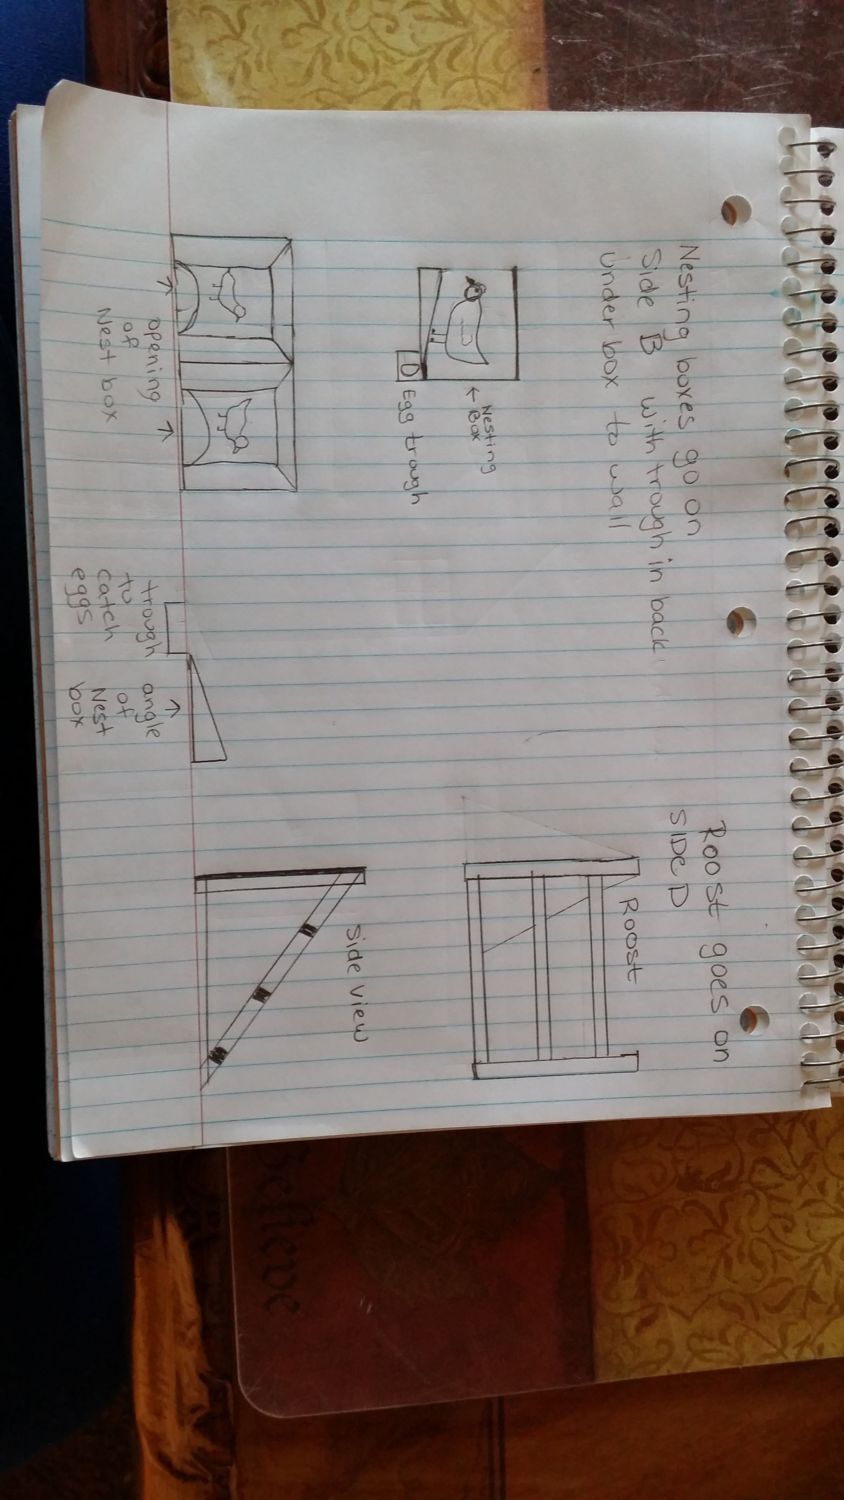 Nesting boxes go on
Side B with trough in back
Under box to wall
Nesting
Box
Egg trough
opening
of
Nest box
trough
to
catch
eggs
angle
of
Nest
box
Roost goes on
SIDE D
Roost
Side view
Believe